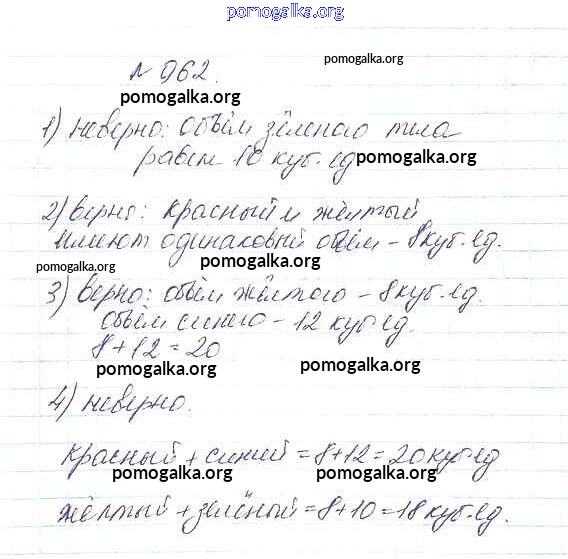 pomogalka.org
№ 962.
pomogalka.org
pomogalka.org
1) неверно: объём зелёного тела
равен 10 куб. ед
pomogalka.org
2) верно: красный и жёлтый
имеют одинаковый объём - 8 куб. ед.
pomogalka.org
pomogalka.org
3) верно: объём жёлтого - 8 куб. ед.
объём синего - 12 куб. ед.
pomogalka.org
8 + 12 = 20
pomogalka.org
4) неверно.
красный + синий = 8 + 12 = 20 куб. ед
pomogalka.org pomogalka.org
жёлтый + зелёный = 8 + 10 = 18 куб. ед.
pomogalka.org pomogalka.org